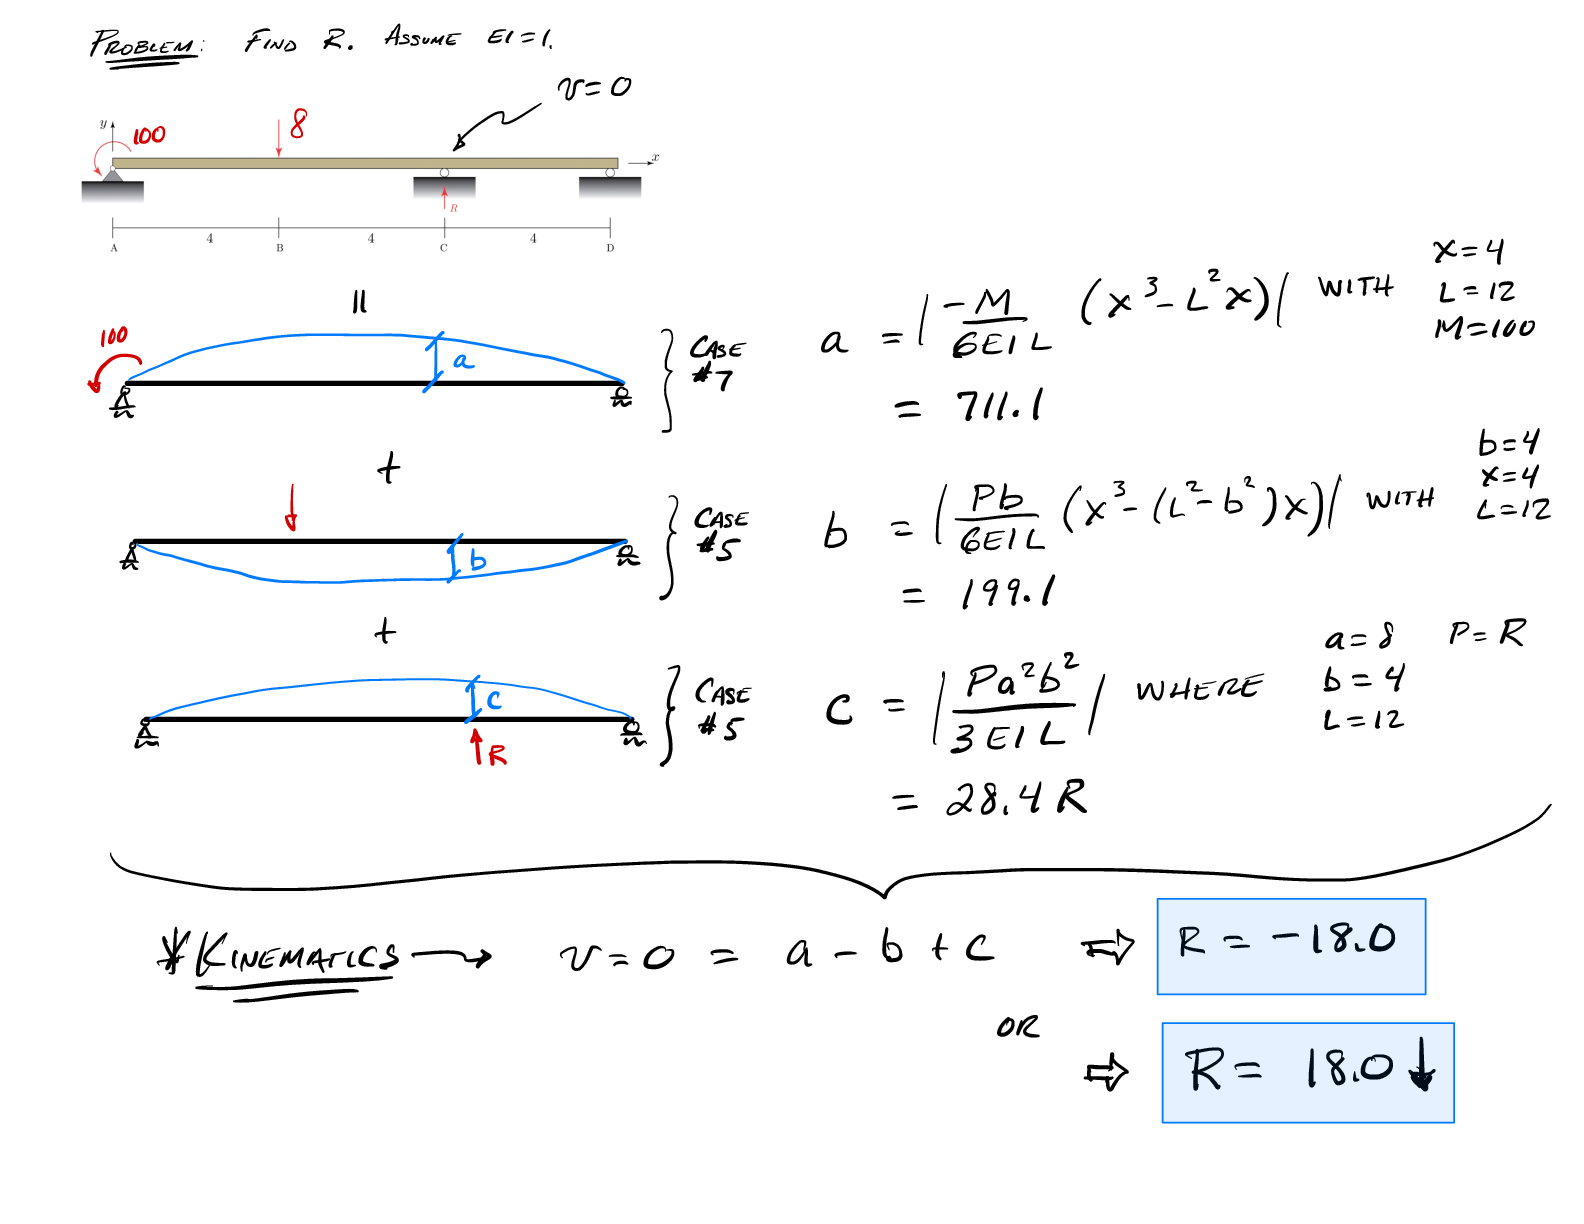 PROBLEM: FIND R. ASSUME EI=1.
v=0
y
100
8
x
R
4 4 4
A B C D
=
100
a
CASE #7
a = |-M/6EIL (x³-L²x)| WITH x=4 L=12 M=100
= 711.1
+
b
CASE #5
b = |Pb/6EIL (x³-(L²-b²)x)| WITH b=4 x=4 L=12
= 199.1
+
c
R
CASE #5
c = |Pa²b²/3EIL| WHERE a=8 P=R b=4 L=12
= 28.4 R
*KINEMATICS → v=0 = a-b+c ⇒ R = -18.0
OR
⇒ R = 18.0↓